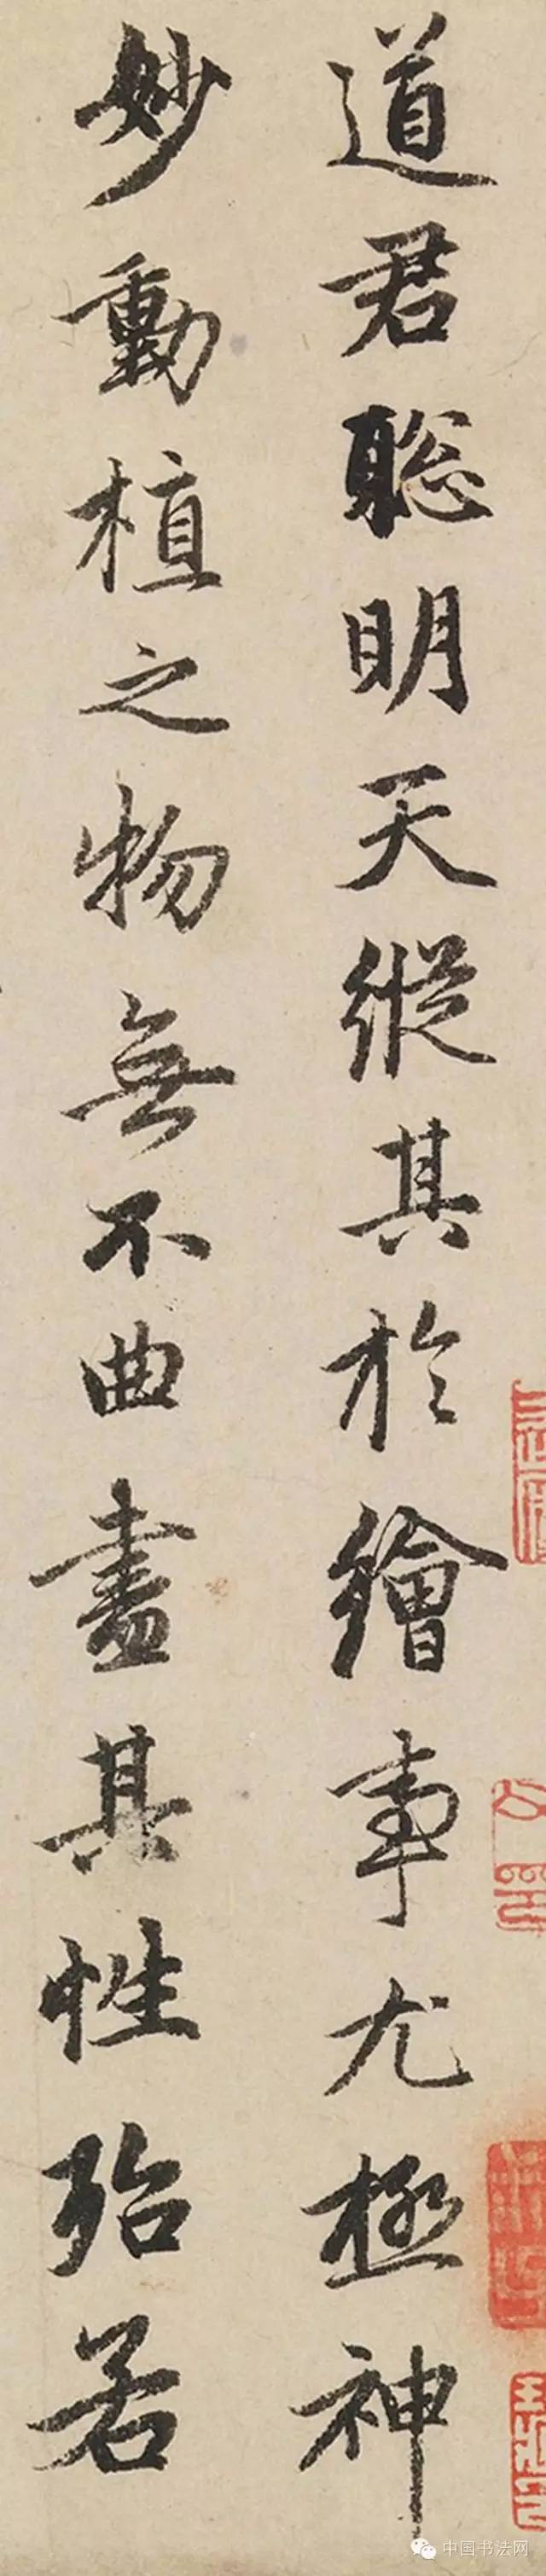 道君聪明天縱其於繪事尤極神
妙動植之物無不曲盡其性殆若
中国书法网